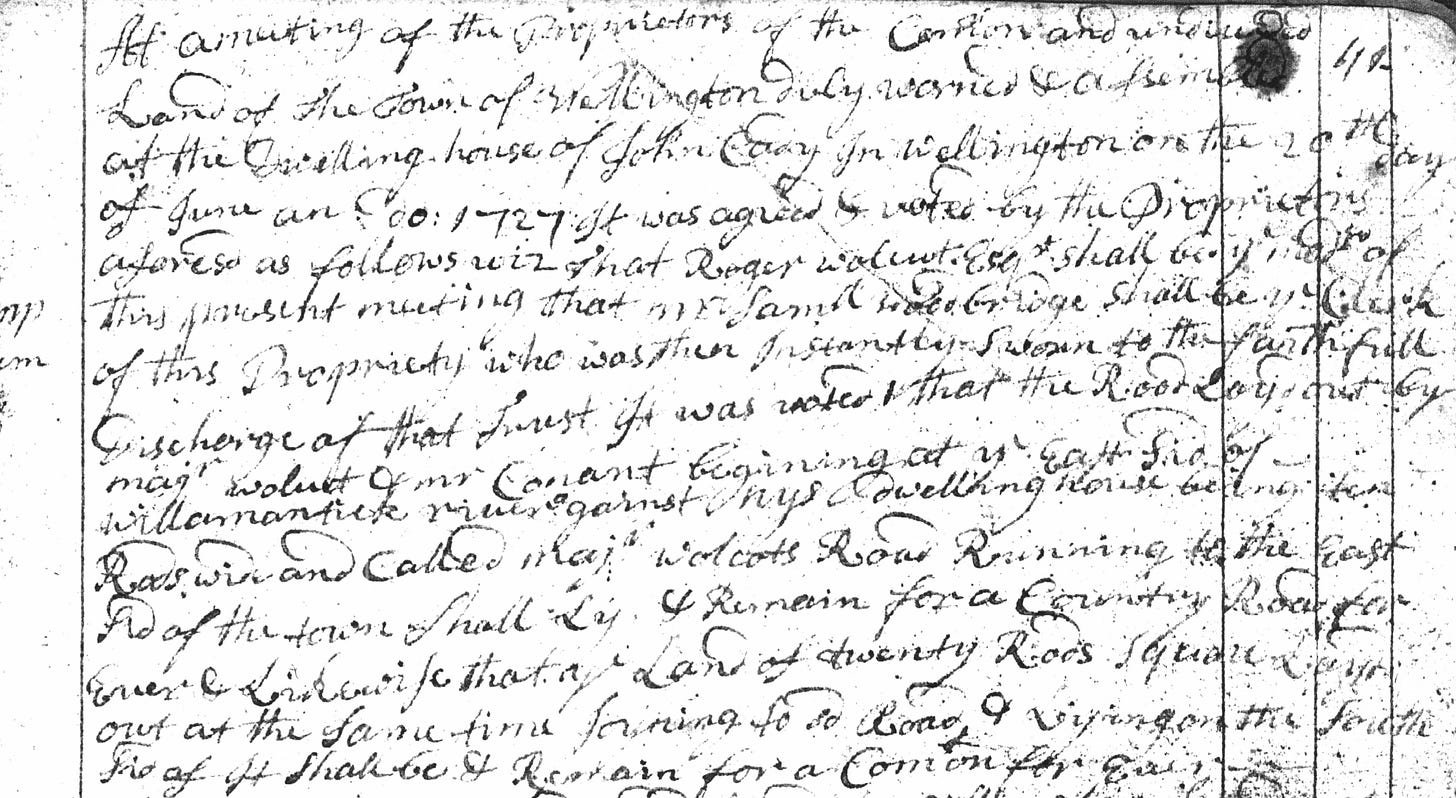 At a meeting of the Proprietors of the Comon and undivided
Land of the Town of Wellington duly warned & assembled
at the Dwelling house of John Eady In Wellington on the 20th day
of June an Do: 1727 It was agreed & voted by the Proprietors
aforesd as follows viz That Roger wolcut Esqr shall be yr modtr of
this present meeting that mr Samll woodbridge Shall be yr Clerk
of this Propriety who was then Instantly Sworn to the faithfull
Discharge of that Trust It was voted that the Rood Lay out by
majr wolcut & mr Conant begining at yr East Sid of
willamantick river against Nys dwelling house being ten
Rods wid and Called majr wolcots Road Running to the East
Sid of the town Shall Ly & Remain for a Country Road for
Euer & Likewise that yr Land of twenty Rods Square Layd
out at the Same time Joyning to sd Road & Lying on the South
Sid of It Shall be & Remain for a Comon for Euer